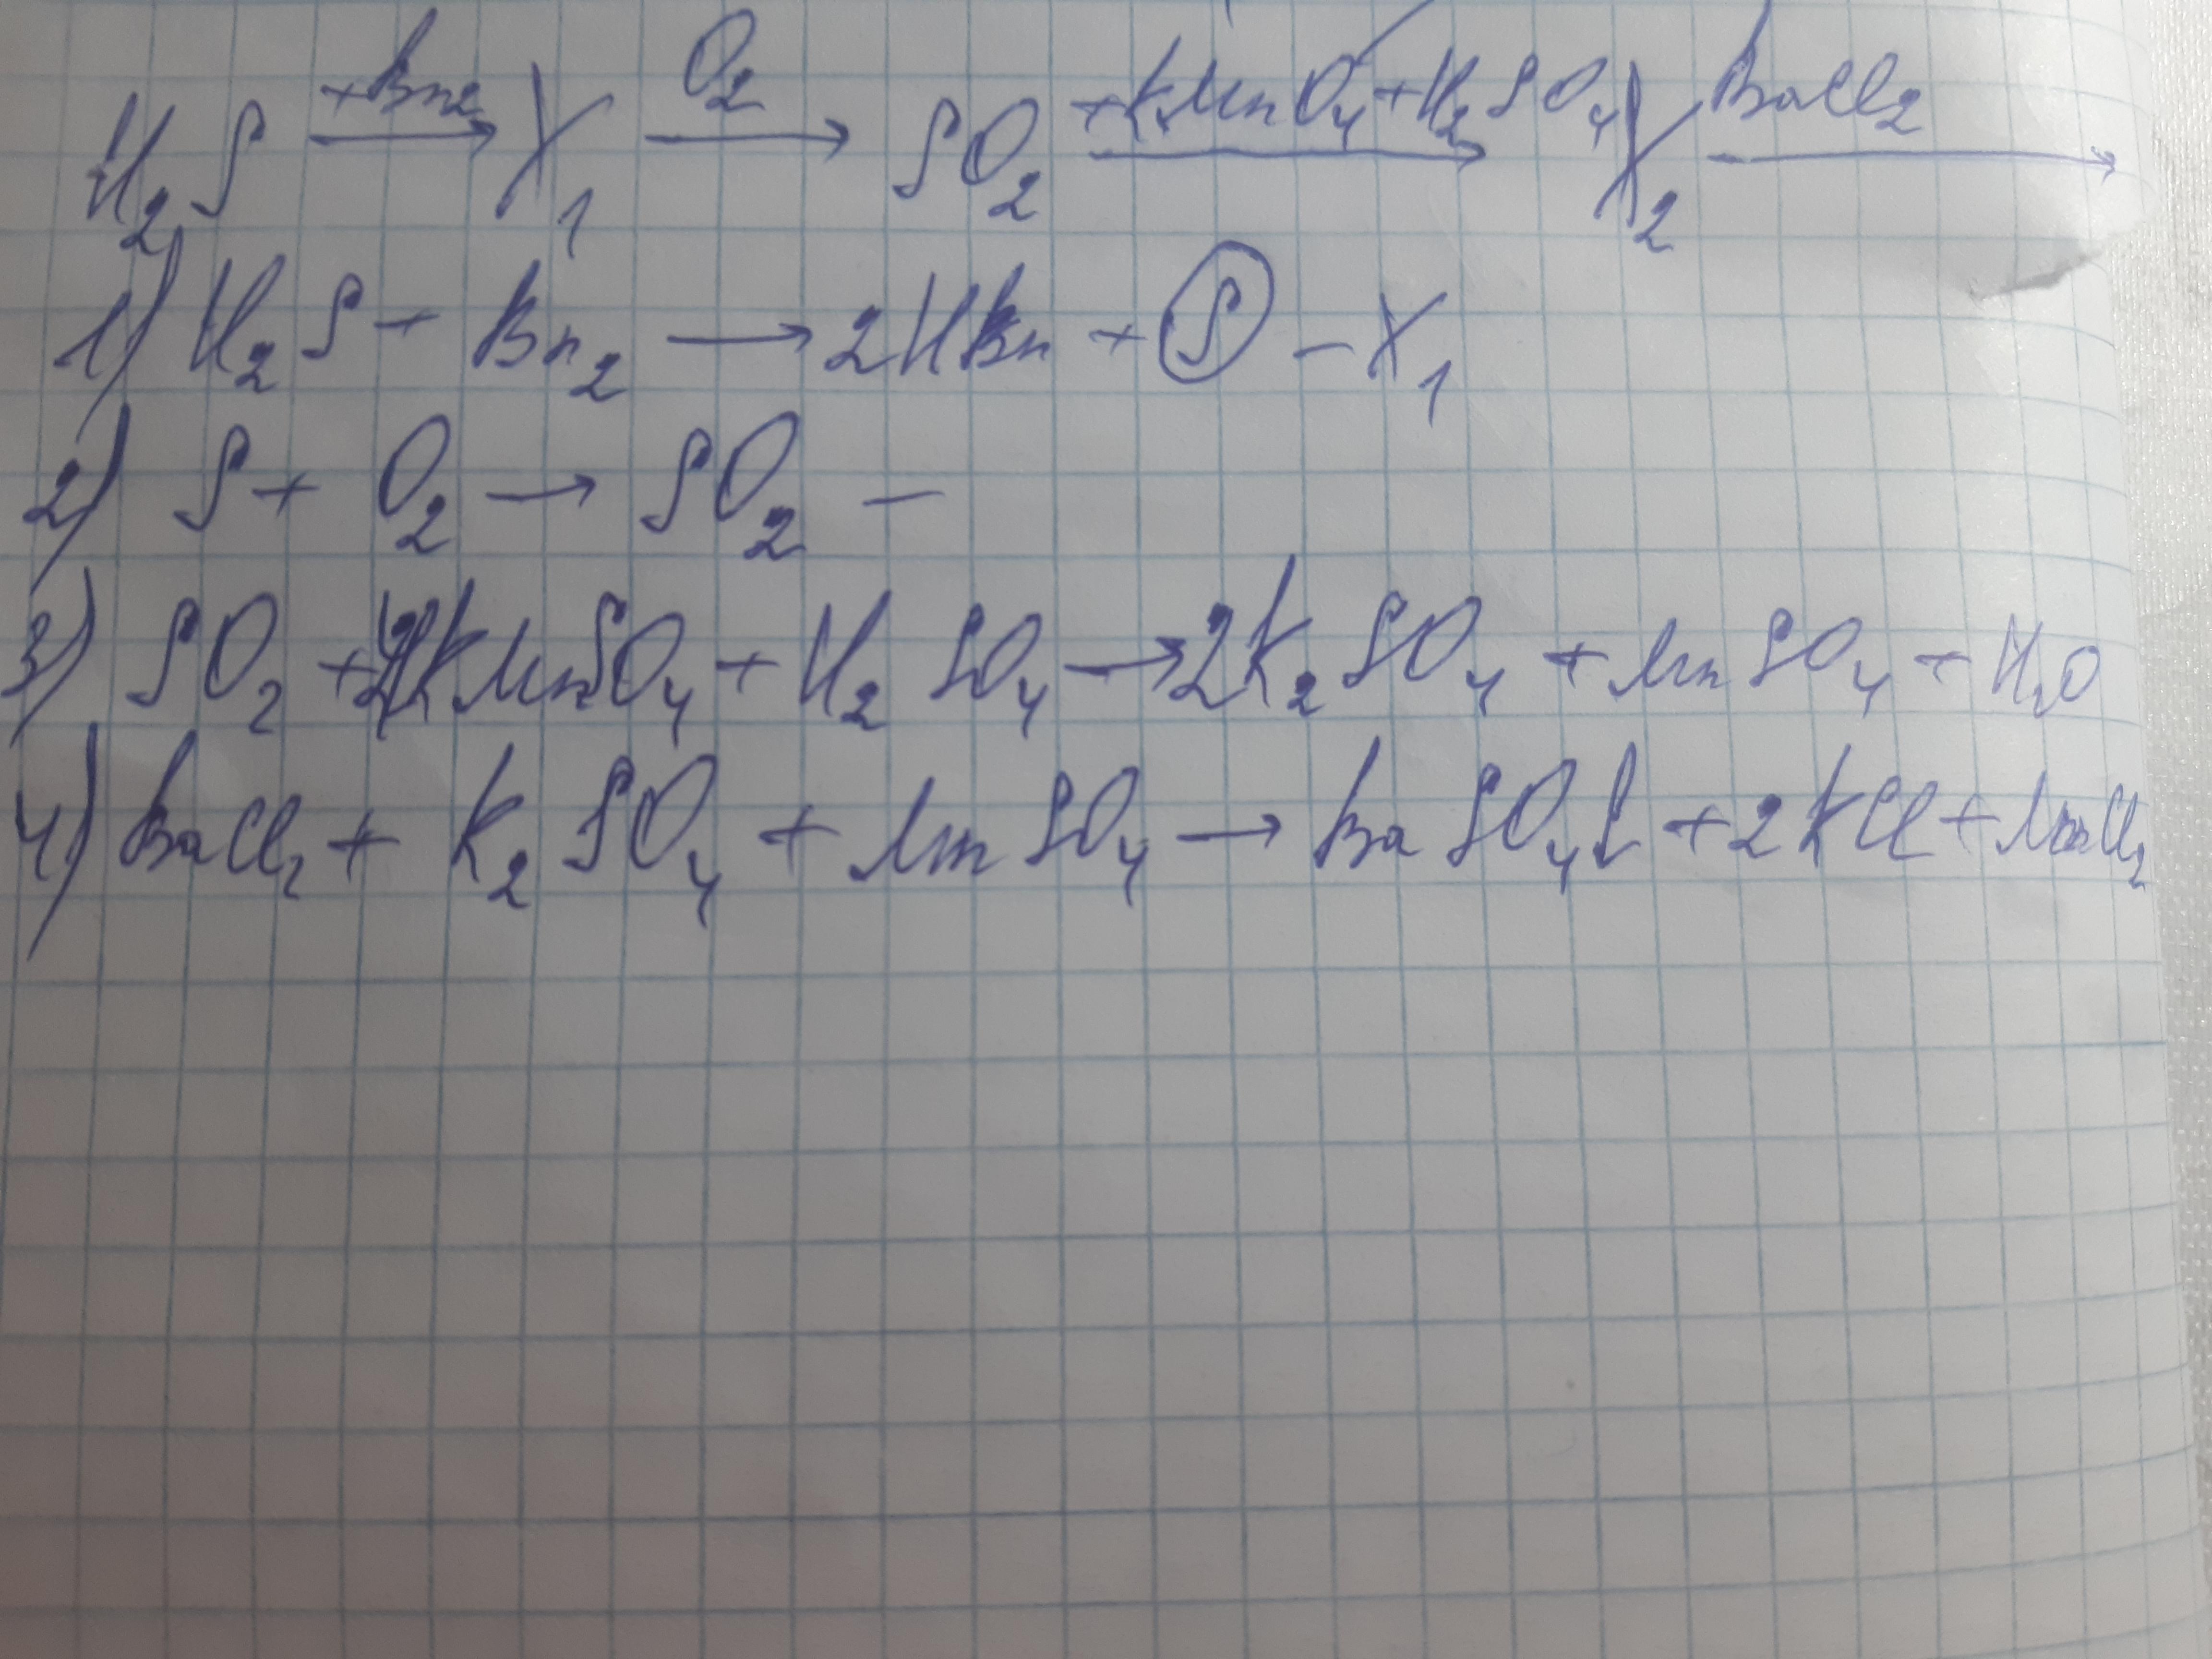 H₂S +Br₂ → X₁ O₂ → SO₂ +KMnO₄+H₂SO₄ → X₂ BaCl₂ →
1) H₂S + Br₂ → 2HBr + S - X₁
2) S + O₂ → SO₂ -
3) SO₂ + 2KMnSO₄ + H₂SO₄ → 2K₂SO₄ + MnSO₄ + H₂O
4) BaCl₂ + K₂SO₄ + MnSO₄ → BaSO₄↓ + 2KCl + MnCl₂